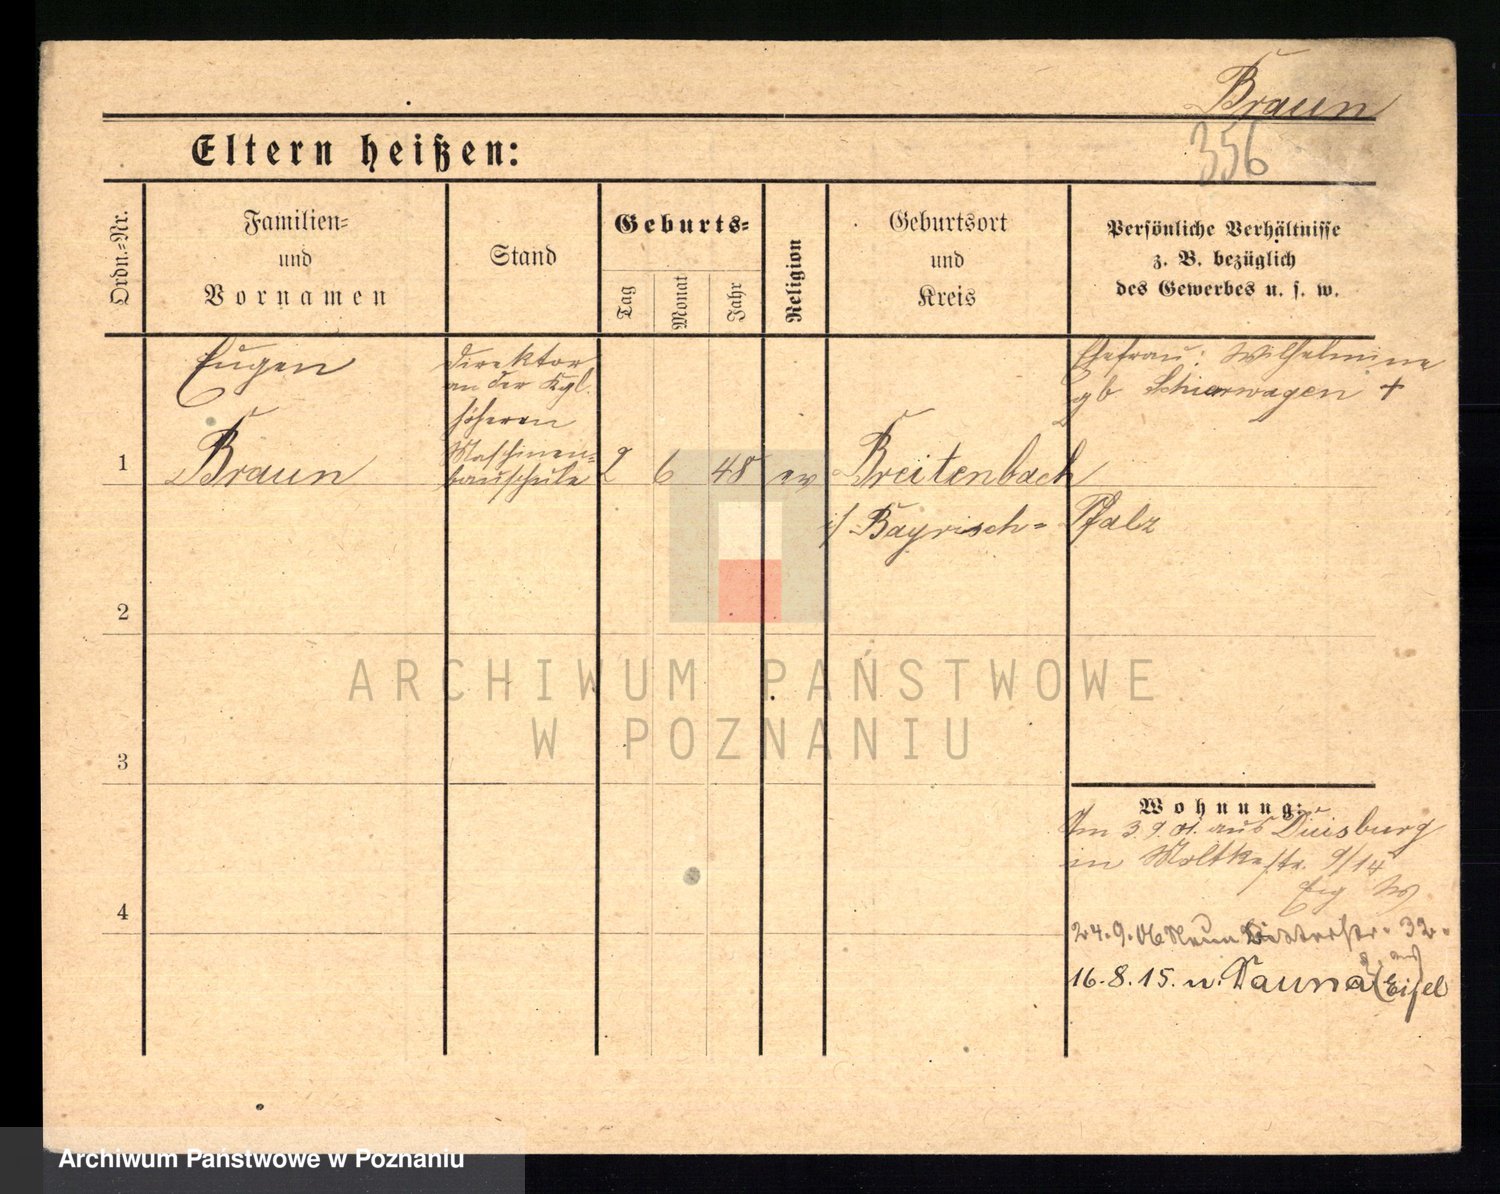 Braun
356
Eltern heißen:
Ordn.-Nr.
Familien-
und
Vornamen
Stand
Geburts-
Tag
Monat
Jahr
Religion
Geburtsort
und
Kreis
Persönliche Verhältnisse
z. B. bezüglich
des Gewerbes u. s. w.
1
Eugen
Braun
Direktor
an der Kgl.
höheren
Maschinen-
bauschule
2 6 48 ev
Breitenbach
i/ Bayrisch- Pfalz
Ehefrau: Wilhelmine
gb +
2
3
4
Wohnung:
Am 3.9.01. aus Duisburg
in Moltkestr. 9/14
24.9.06 32.
16.8.15. n. Dauna (Eifel
ARCHIWUM PAŃSTWOWE
W POZNANIU
Archiwum Państwowe w Poznaniu